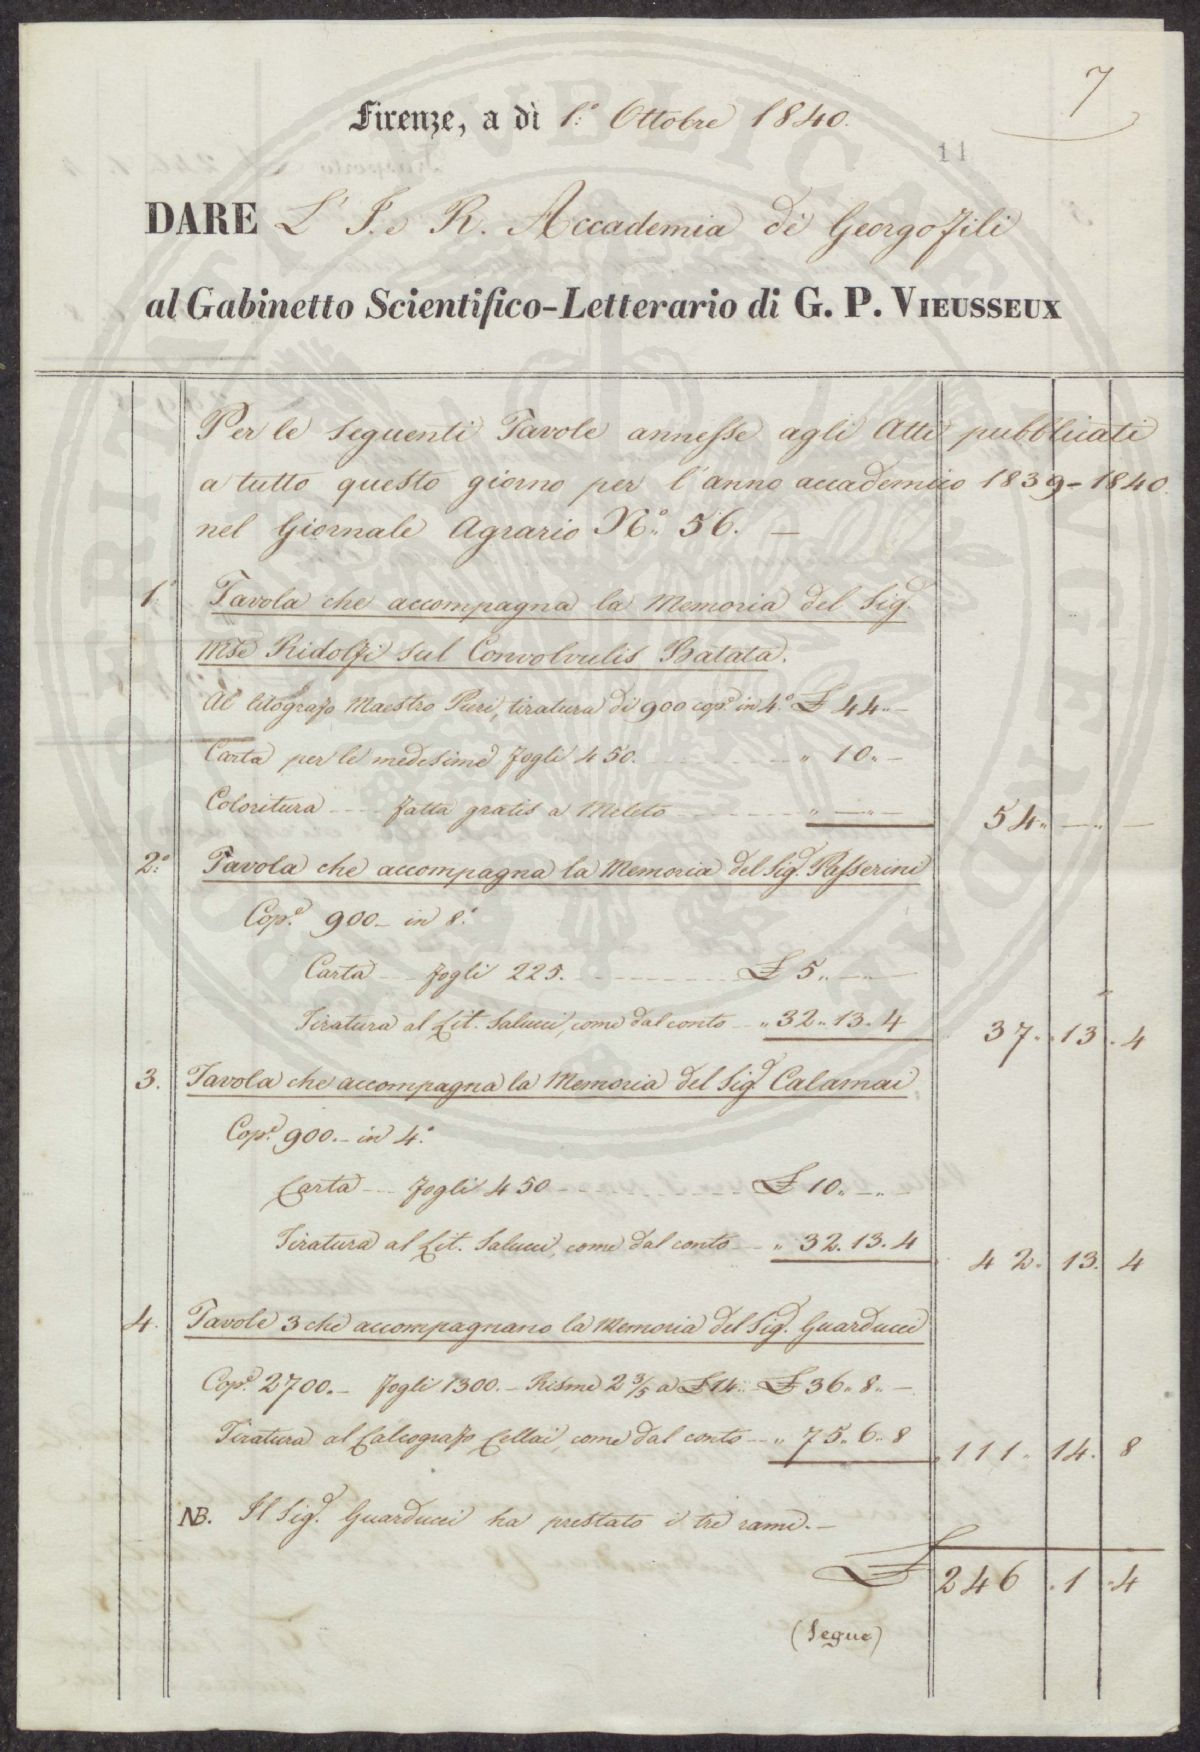 7
Firenze, a dì 1.° Ottobre 1840.
11
DARE L' I. e R. Accademia di Georgofili
al Gabinetto Scientifico-Letterario di G. P. VIEUSSEUX
Per le seguenti Tavole annesse agli Atti pubblicati
a tutto questo giorno per l'anno accademico 1839-1840.
nel Giornale Agrario N.° 56. —
1.° Tavola che accompagna la Memoria del Sig.r
Mse Ridolfi sul Convolvulis Batata.
Al litografo Maestro Puri, tiratura di 900 cop.e in 4.° £ 44.. —
Carta per le medesime fogli 450. " 10.. —
Coloritura fatta gratis a Meleto " — " — 54.. — .. —
2.° Tavola che accompagna la Memoria del Sig.r Passerini
Cop.e 900 — in 8.°
Carta — fogli 225. £ 5.. — .. —
Tiratura al Lit. Salucci, come dal conto — " 32.. 13. 4 37.. 13. 4
3. Tavola che accompagna la Memoria del Sig.r Calamai
Cop.e 900. — in 4.°
Carta — fogli 450 £ 10.. — .. —
Tiratura al Lit. Salucci, come dal conto — " 32. 13. 4 42. 13. 4
4. Tavole 3 che accompagnano la Memoria del Sig.r Guarducci
Cop.e 2700. — fogli 1300. — Risme 2 3/5 a £ 14.. £ 36.. 8.. —
Tiratura al Calcografo Cellai, come dal conto — " 75.. 6.. 8 111.. 14. 8
NB. Il Sig.r Guarducci ha prestato i tre rami. —
£ 246 . 1 . 4
(Segue)